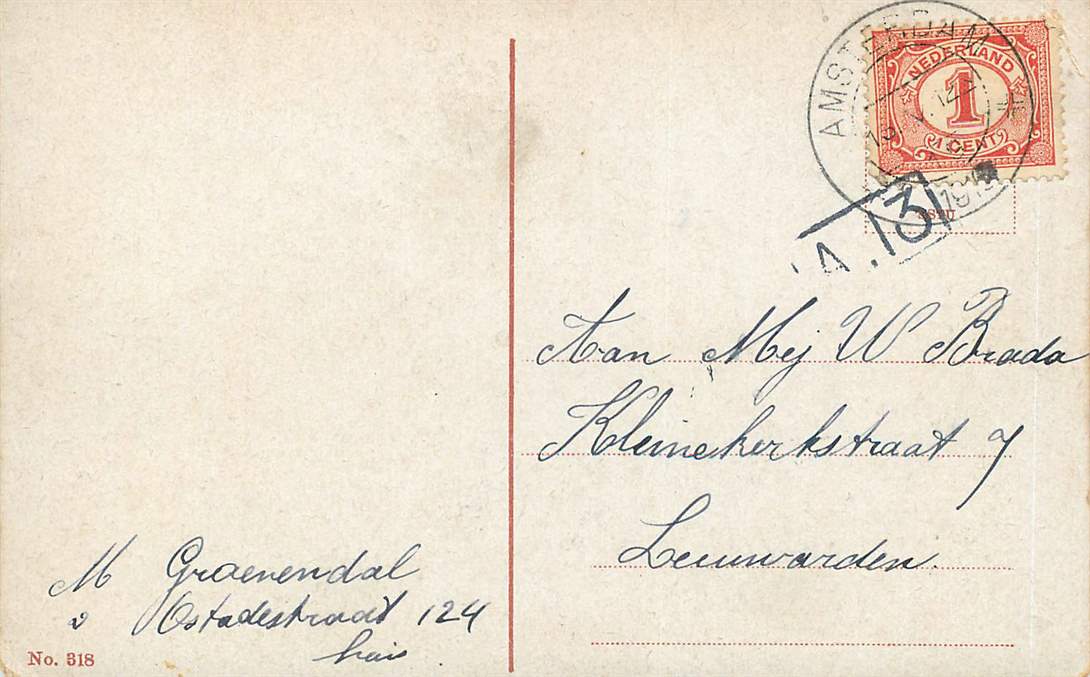 AMSTERDAM
NEDERLAND
1
1 CENT
A.131
Aan Mej W Brada
Kleinekerkstraat 7
Leeuwarden.
M Groenendal
v Ostadestraat 124
huis
No. 318